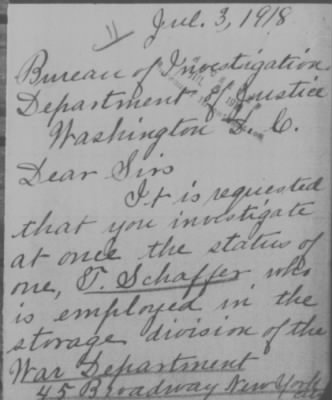 Jul. 3, 1918
Bureau of Investigation
Department of Justice
Washington D. C.
Dear Sirs
It is requested
that you investigate
at once the status of
one, T. Schaffer who
is employed in the
storage division of the
War Department
45 Broadway New York